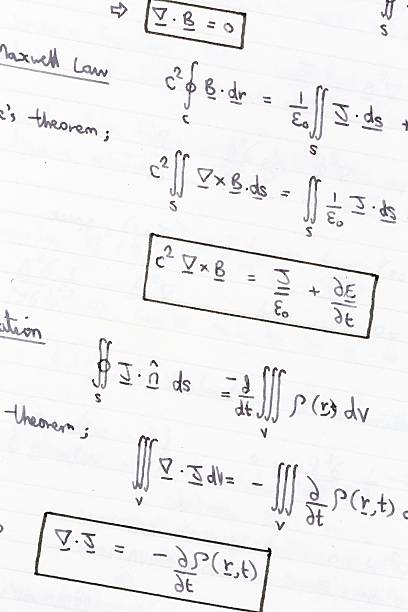 ⇒ ∇ · B = 0
Maxwell Law c² ∮_c B · dr = 1/ε₀ ∬_S J · ds +
theorem;
c² ∬_S ∇ × B · ds = ∬_S 1/ε₀ J · ds
c² ∇ × B = J/ε₀ + ∂E/∂t
∯_S J · n̂ ds = -d/dt ∭_V ρ(r,t) dV
theorem;
∭_V ∇ · J dV = - ∭_V ∂/∂t ρ(r,t)
∇ · J = - ∂ρ(r,t)/∂t